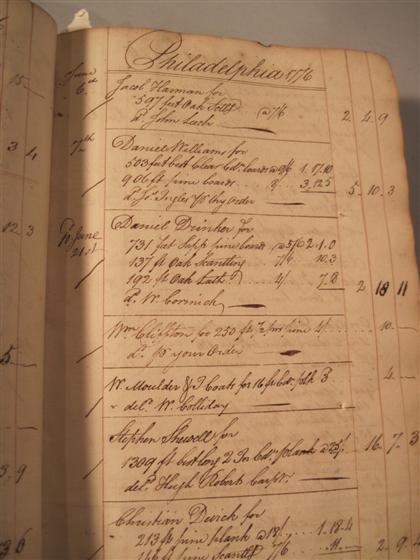 Philadelphia 1776
June 6th
Jacob Harman for
597 feet Oak @ 7/6 2 4 9
dd. John Lach
7th
Daniel Williams for
503 feet best Clear Cdr. boards 1.17.10
906 ft pine boards 3.12.5 5 10 3
dd. Jos. Ingles pr Order
June 21st
Daniel Drinker for
731 feet Sapp pine boards 2.1.0
137 ft Oak Scantling 7/6 10.3
192 ft Oak Lath 4/ 7.8 2 18 11
dd. W. Cormick
Wm. Clifton for 250 ft pine 4/ 10
dd. pr your Order
W. Moulder & J Coats for 16 ft Cdr. plk 3 4
deld. W. Colliday
Stephen Shewell for
1309 ft best long 2 In Cdr. plank @ 25/ 16 7 3
deld. Hugh Roberts Carpr.
Christian Dirick for
213 ft pine plank @ 18/ 1.18.4
146 ft pine Scantg 7/6 11 2 9
15
3 4
12 3
5
3 9
3 6